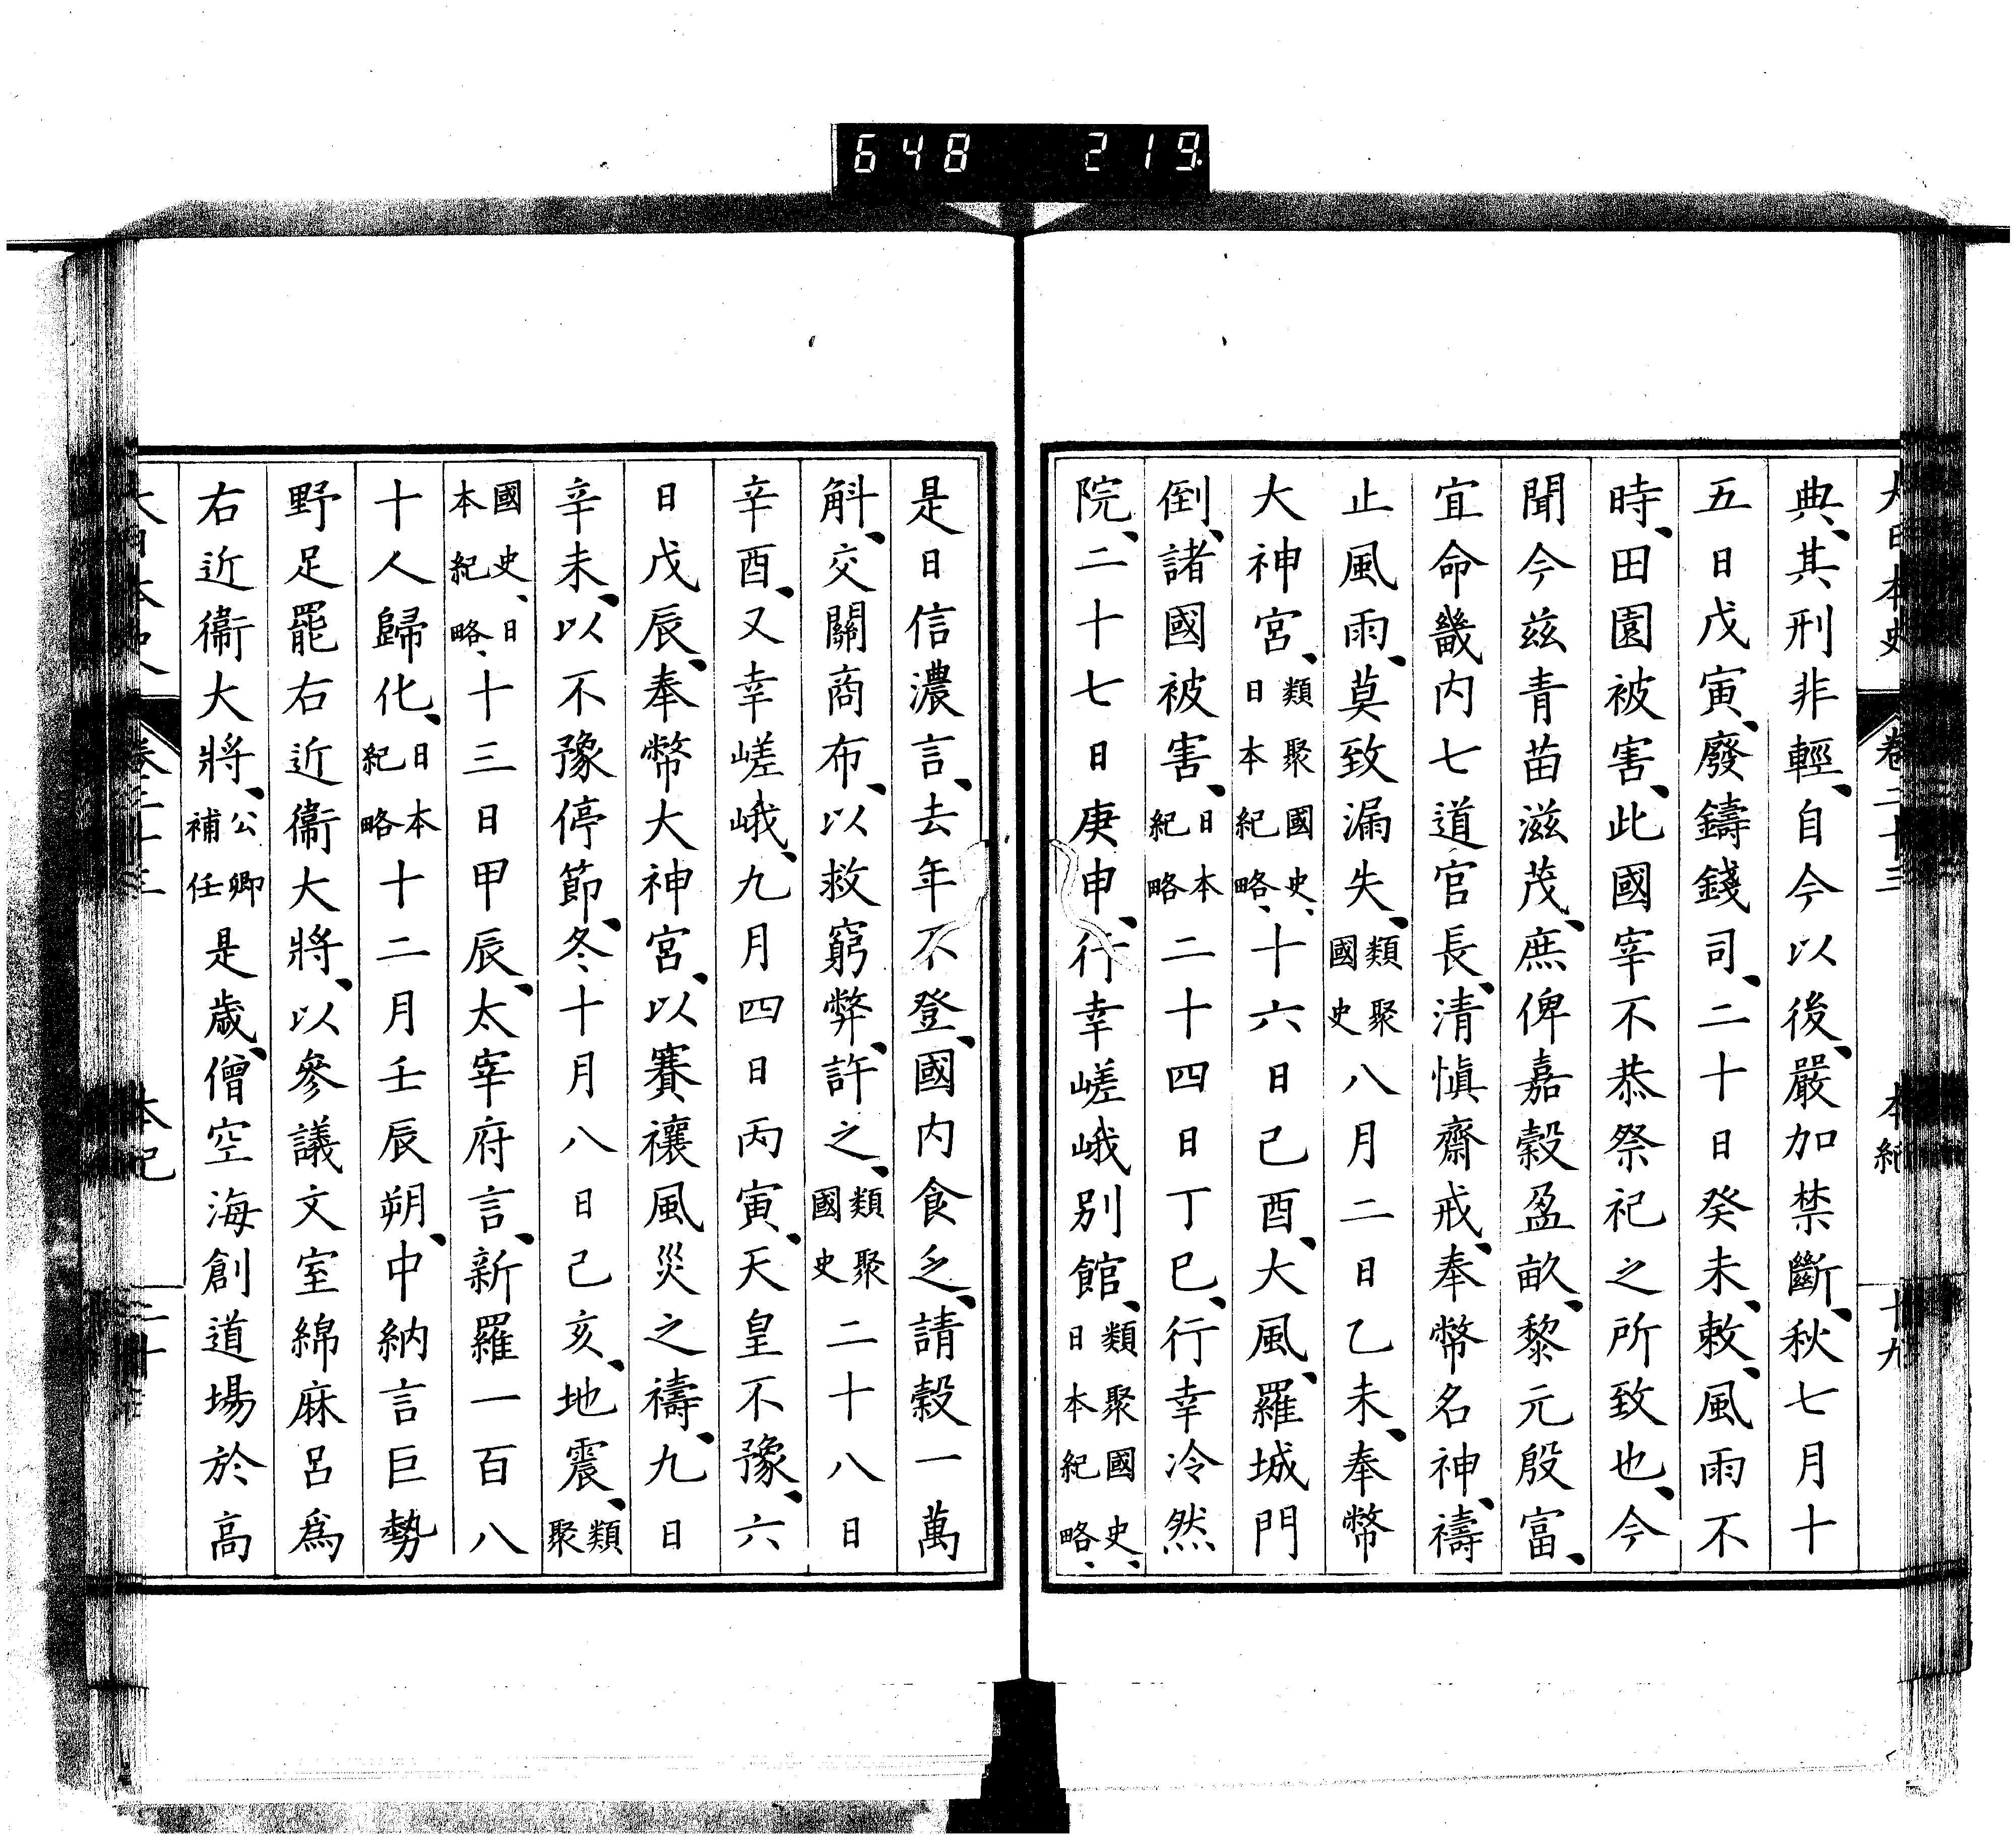 648 219
大日本史 卷二十三 本紀 十九
典、其刑非輕、自今以後、嚴加禁斷、秋七月十
五日戊寅、廢鑄錢司、二十日癸未、敕、風雨不
時、田園被害、此國宰不恭祭祀之所致也、今
聞今茲青苗滋茂、庶俾嘉穀盈畝、黎元殷富、
宜命畿内七道官長、清愼齋戒、奉幣名神、禱
止風雨、莫致漏失、類聚國史八月二日乙未、奉幣
大神宮、類聚國史、日本紀略、十六日己酉、大風、羅城門
倒、諸國被害、日本紀略二十四日丁巳、行幸冷然
院、二十七日庚申、行幸嵯峨別館、類聚國史、日本紀略、
是日信濃言、去年不登、國内食乏、請穀一萬
斛、交關商布、以救窮弊、許之、類聚國史二十八日
辛酉、又幸嵯峨、九月四日丙寅、天皇不豫、六
日戊辰、奉幣大神宮、以賽禳風災之禱、九日
辛未、以不豫停節、冬十月八日己亥、地震、類聚
國史、日本紀略、十三日甲辰、太宰府言、新羅一百八
十人歸化、日本紀略十二月壬辰朔、中納言巨勢
野足罷右近衞大將、以參議文室綿麻呂爲
右近衞大將、公卿補任是歳、僧空海創道場於高
本紀 二十